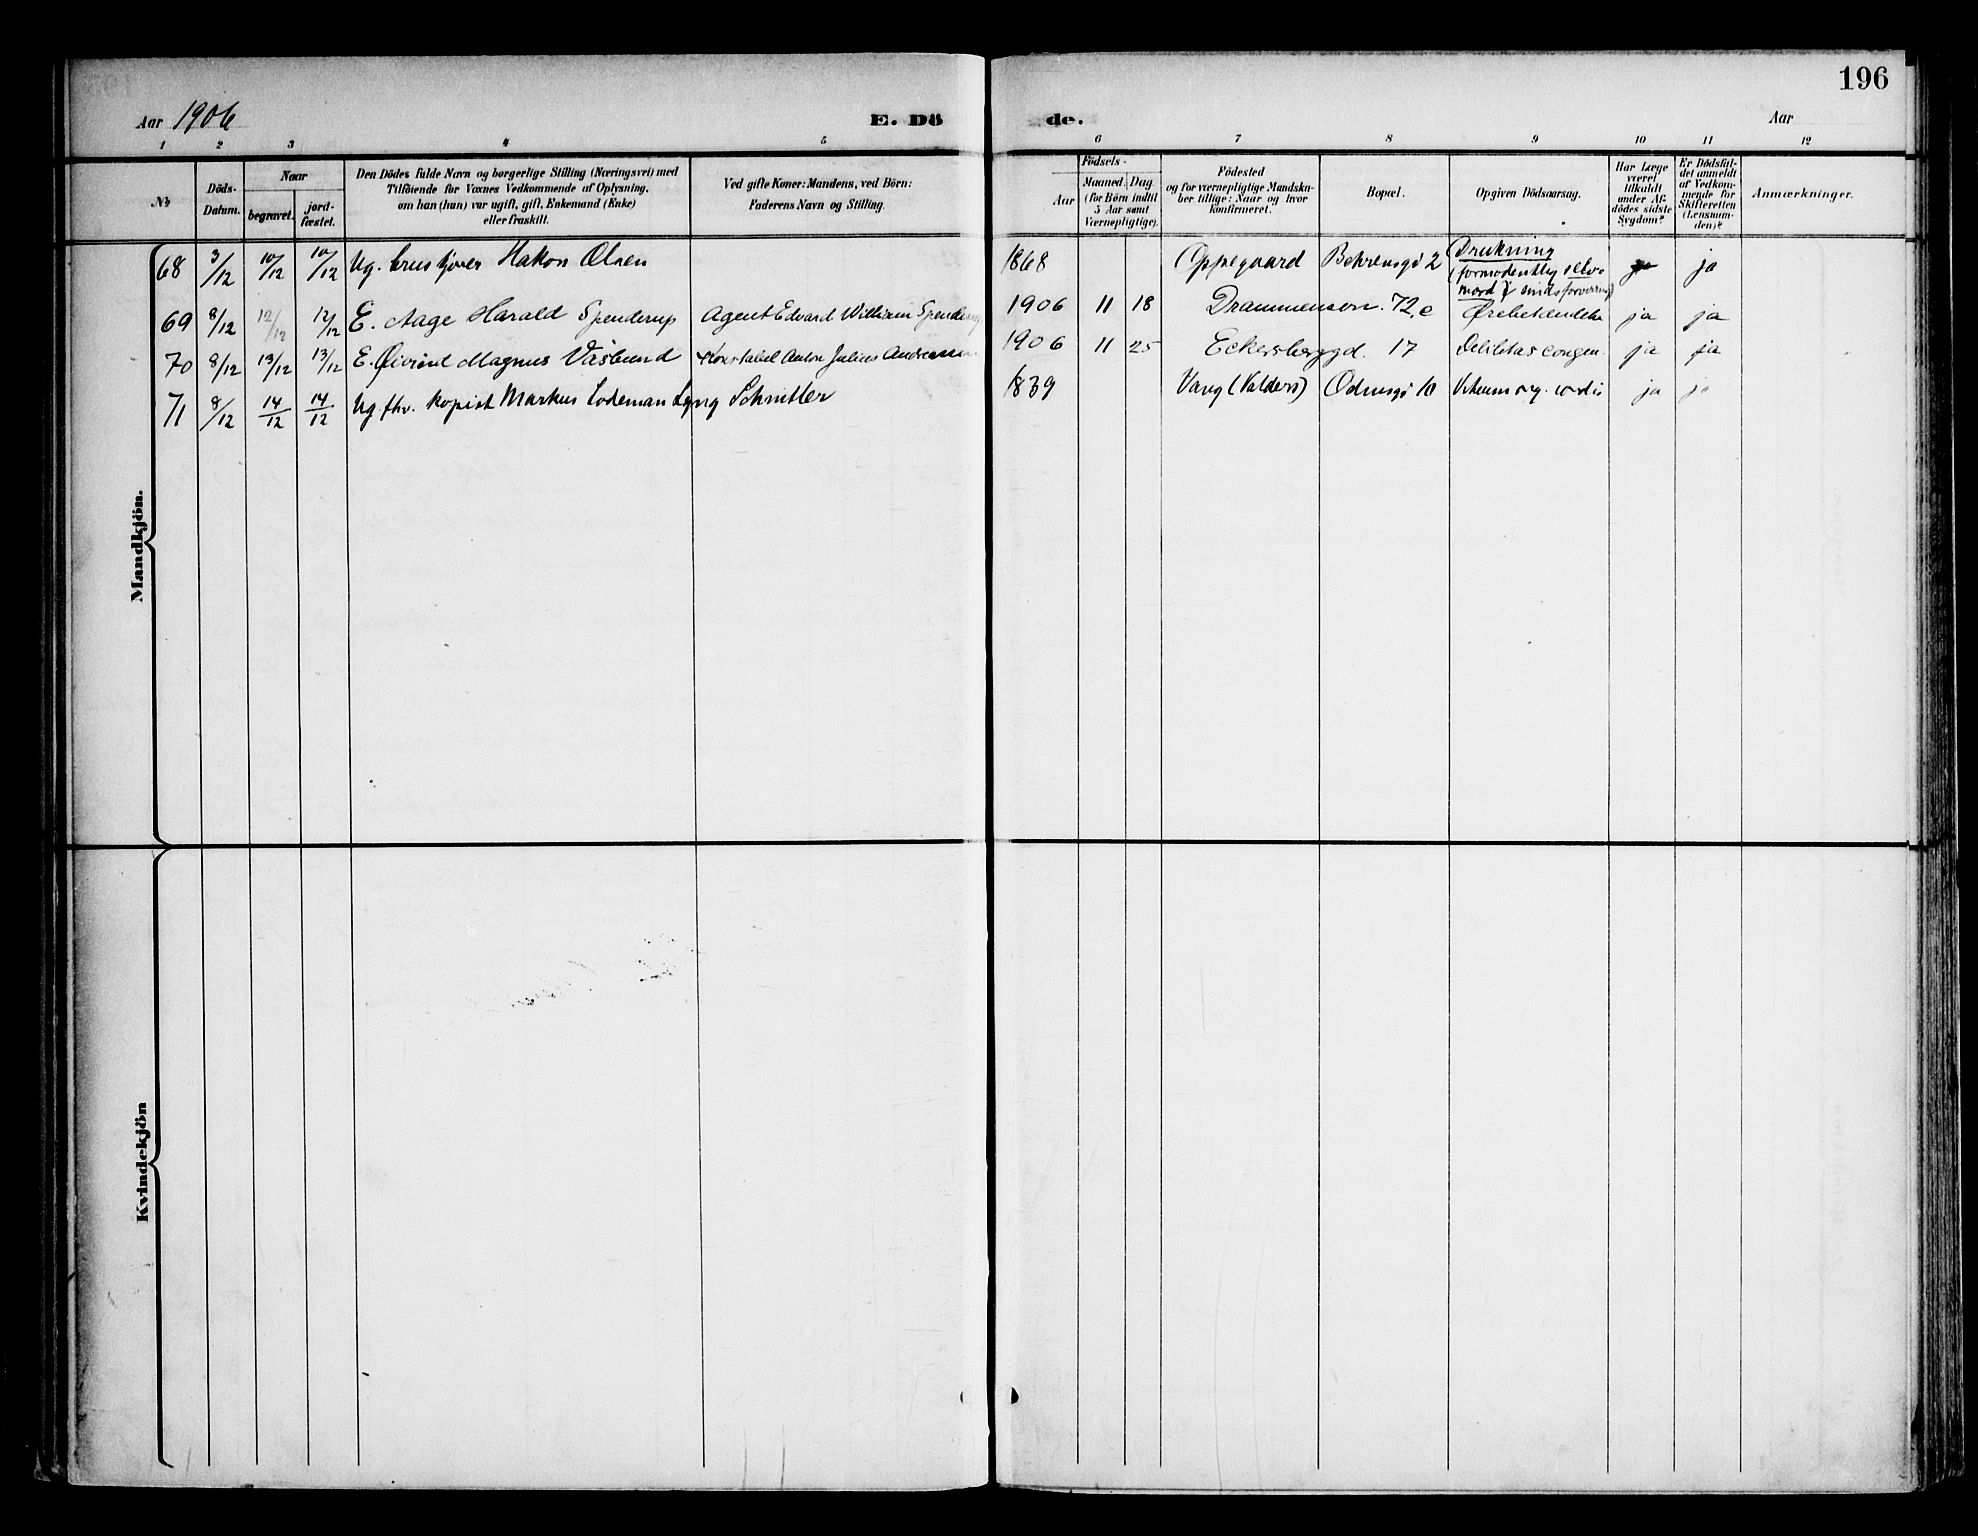 196
Aar 1906
E. Dö
de.
Aar
1 2 3 4 5 6 7 8 9 10 11 12
№
Döds-
Datum.
Naar
begravet.
jord-
fæstet.
Den Dödes fulde Navn og borgerlige Stilling (Næringsvei) med
Tilföiende for Voxnes Vedkommende af Oplysning,
om han (hun) var ugift, gift, Enkemand (Enke)
eller fraskilt.
Ved gifte Koner: Mandens, ved Börn:
Faderens Navn og Stilling.
Födsels-
Aar
Maaned. Dag
(for Börn indtil
5 Aar samt
Værnepligtige).
Födested
og for værnepligtige Mandska-
ber tillige: Naar og hvor
konfirmeret.
Bopæl.
Opgiven Dödsaarsag.
Har Læge
været
tilkaldt
under Af-
dödes sidste
Sygdom?
Er Dödsfal-
det anmeldt
af Vedkom-
mende for
Skifteretten
(Lensman-
den)?
Anmærkninger.
Mandkjön.
68 3/12 10/12 10/12 Ug. Hakon Olsen 1868 Oppegaard Behrensgd 2 Drukning
(formodentlig selv-
mord i sindsforvirring) ja ja
69 8/12 12/12 12/12 E. Aage Harald Spenderup Agent Edvard William Spenderup 1906 11 18 Drammensvn. 72,c Ørebetændelse ja ja
70 8/12 13/12 13/12 E. Øivind Magnus Vaslund Konstabel Anton Julius Andreassen 1906 11 25 Eckersberggd. 17 Debilitas congen. ja ja
71 8/12 14/12 14/12 Ug. fhv. kopist Markus Lodeman Lyng Schnitler 1839 Vang (Valders) Odinsgd 10 Vitium org. cordis ja ja
Kvindekjön